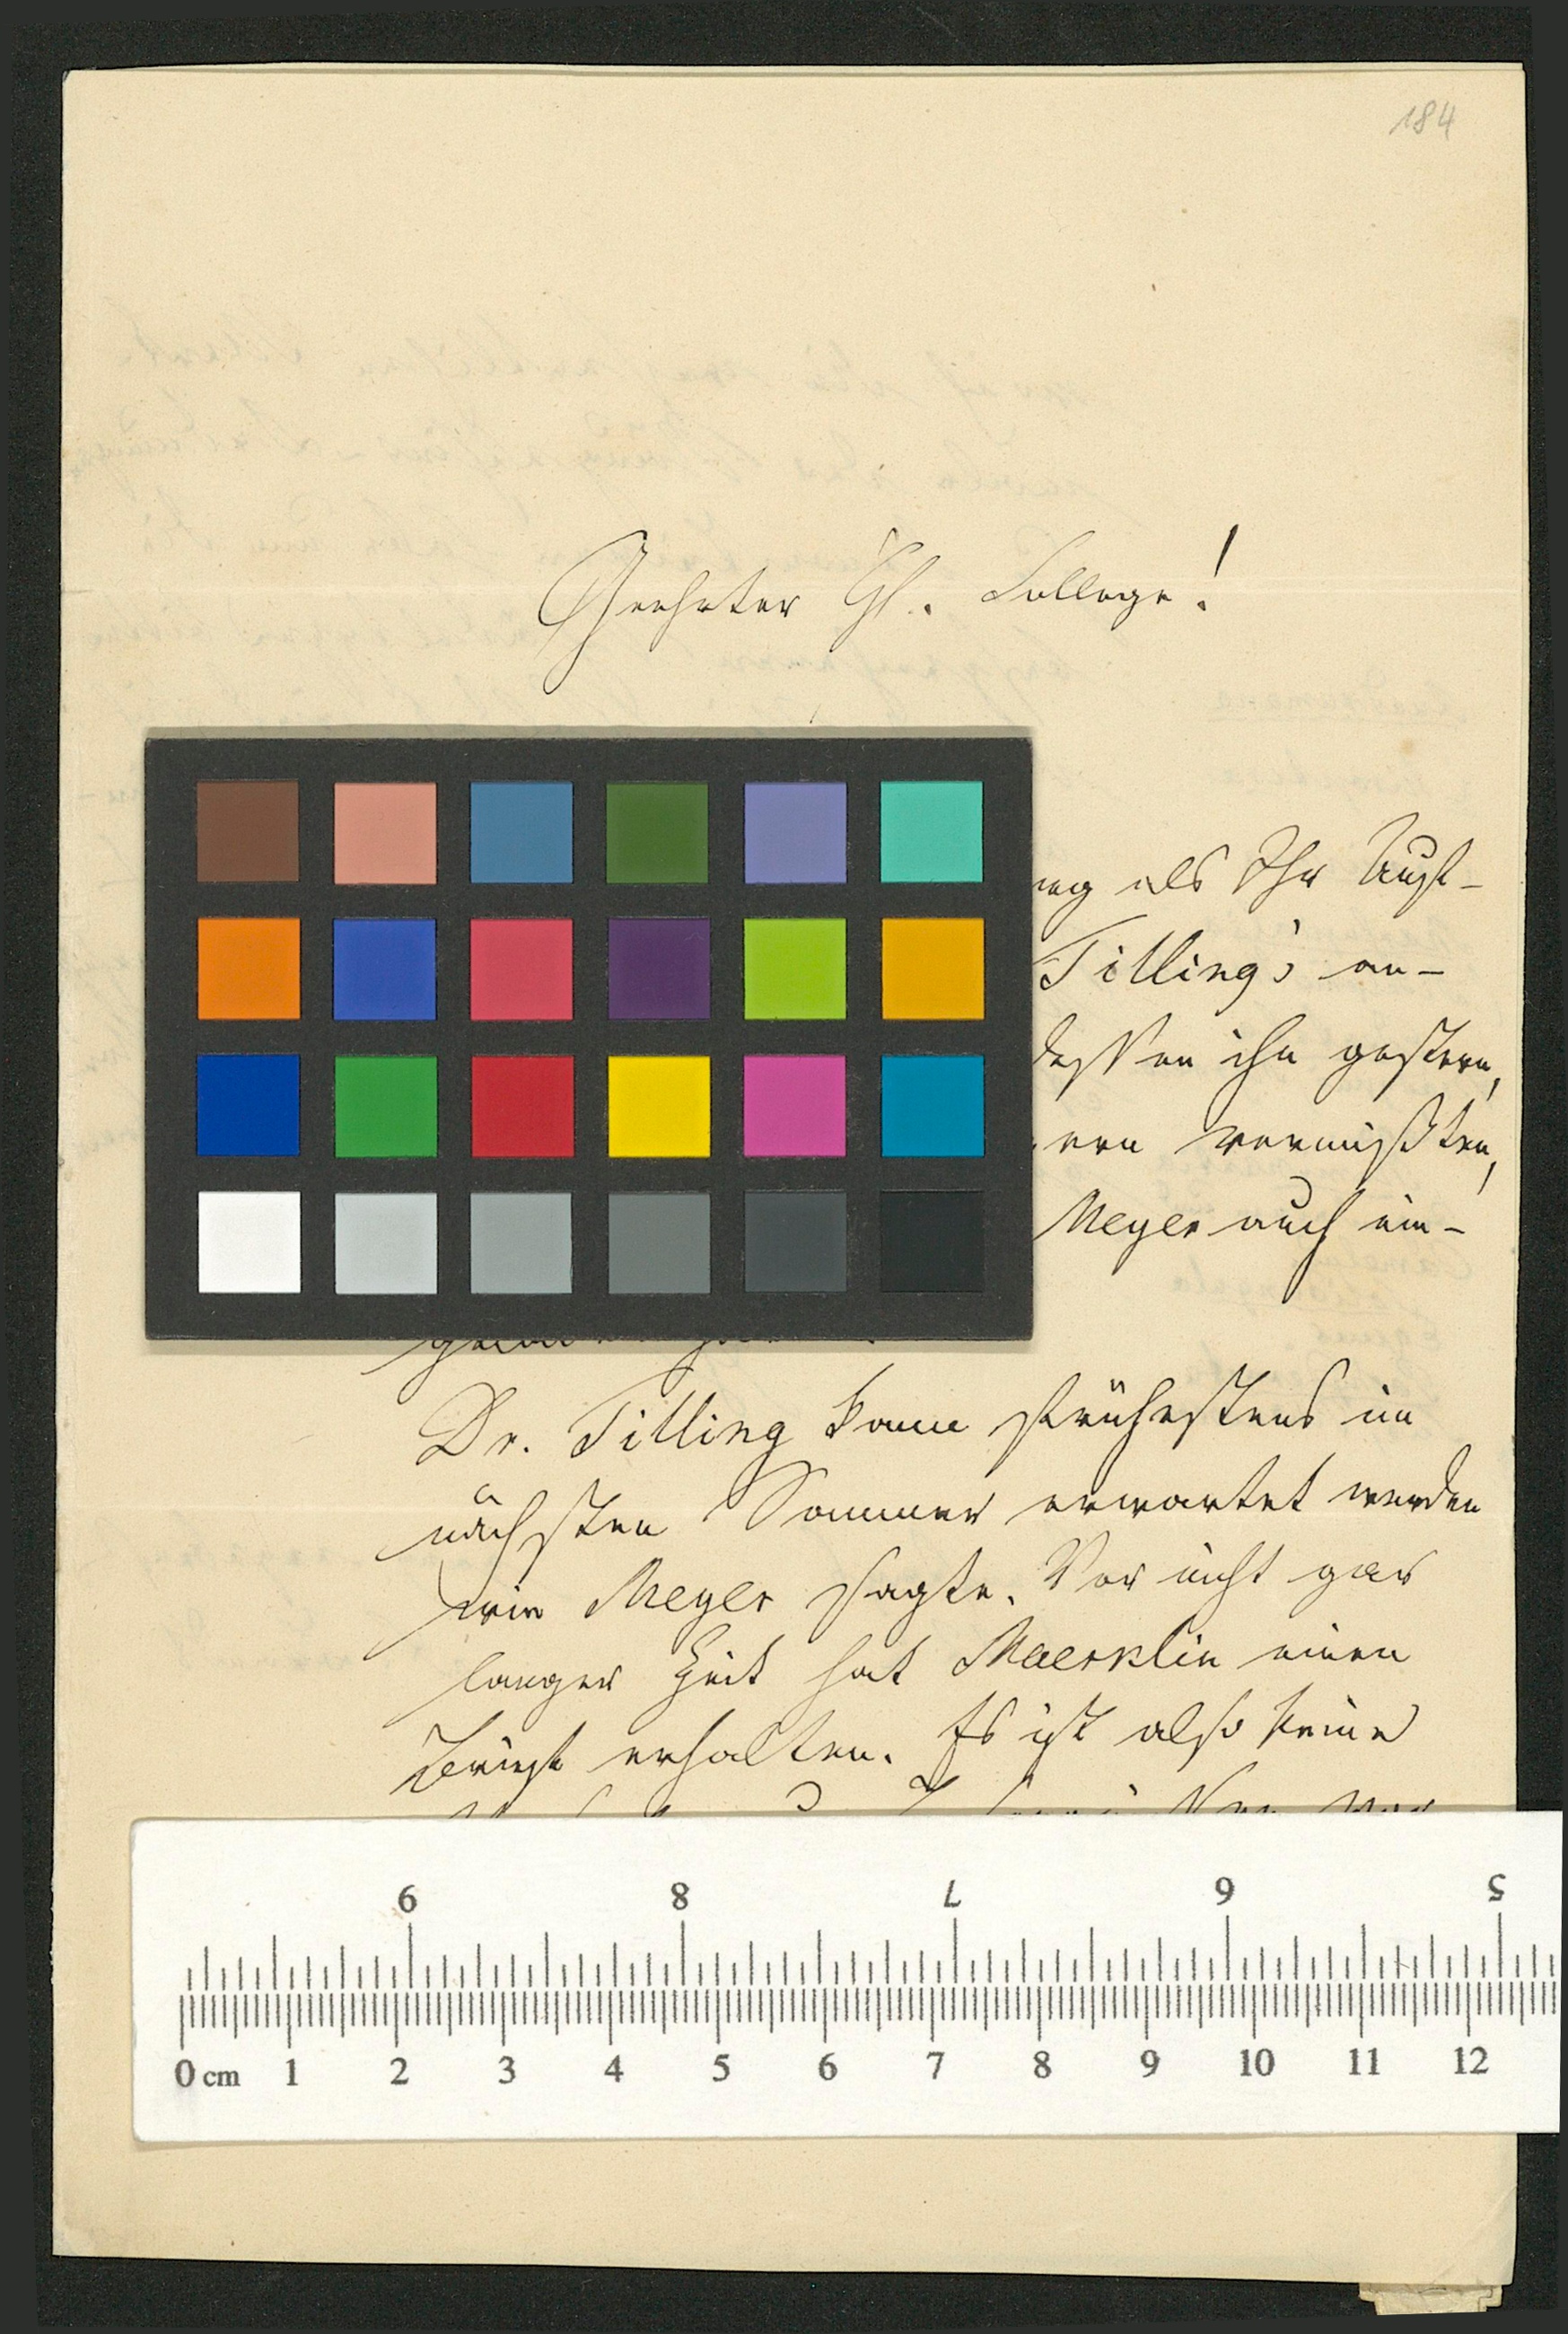 184
Geehrter H. College!
als Ihr Auft-
Tilling's an-
dessen ihn gestern,
vermißten,
Meyer auch ein-
Dr. Tilling kann frühestens im
nächsten Sommer erwartet werden
wie Meyer sagte. Vor nicht gar
langer Zeit hat Maerklin einen
Brief erhalten. Es ist also keine
9 8 7 6 5
0 cm 1 2 3 4 5 6 7 8 9 10 11 12